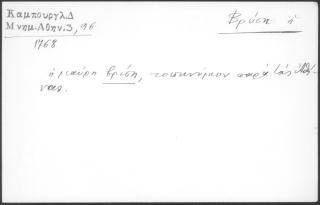 Καμπουργλ.Δ
Μνημ.Αθην.3, 96
1768
Βρύση ἡ
ἡ μαύρη βρύση, τοπωνύμιον παρὰ τὰς Ἀθή-
νας.